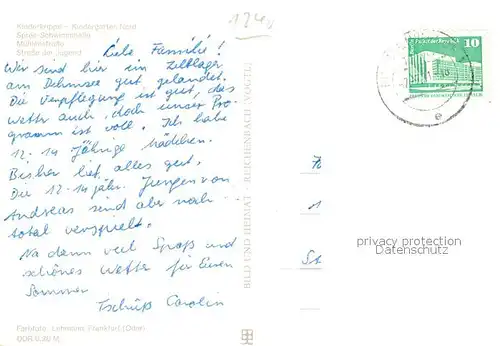 Kinderkrippe - Kindergarten Nord
Sorge-Schwimmhalle
Mühlenstraße
Straße der Jugend
Liebe Familie!
Wir sind hier im Zeltlager
am Dehmsee gut gelandet.
Die Verpflegung ist gut, das
Wetter auch, doch unser Pro-
gramm ist voll. Ich habe
12-14 jährige Mädchen.
Bisher lief alles gut.
Die 12-14jähr. Jungen von
Andreas sind aber noch
total verspielt.
Na dann viel Spaß und
schönes Wetter für Euren
Sommer
Tschüß Carolin
Farbfoto: Lehmann, Frankfurt (Oder)
DDR 0,80 M
BILD UND HEIMAT · REICHENBACH (VOGTL)
10
e
privacy protection
Datenschutz